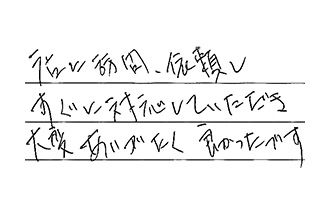 に訪問、依頼し
すぐに対応していただき
大変ありがたく 良かったです